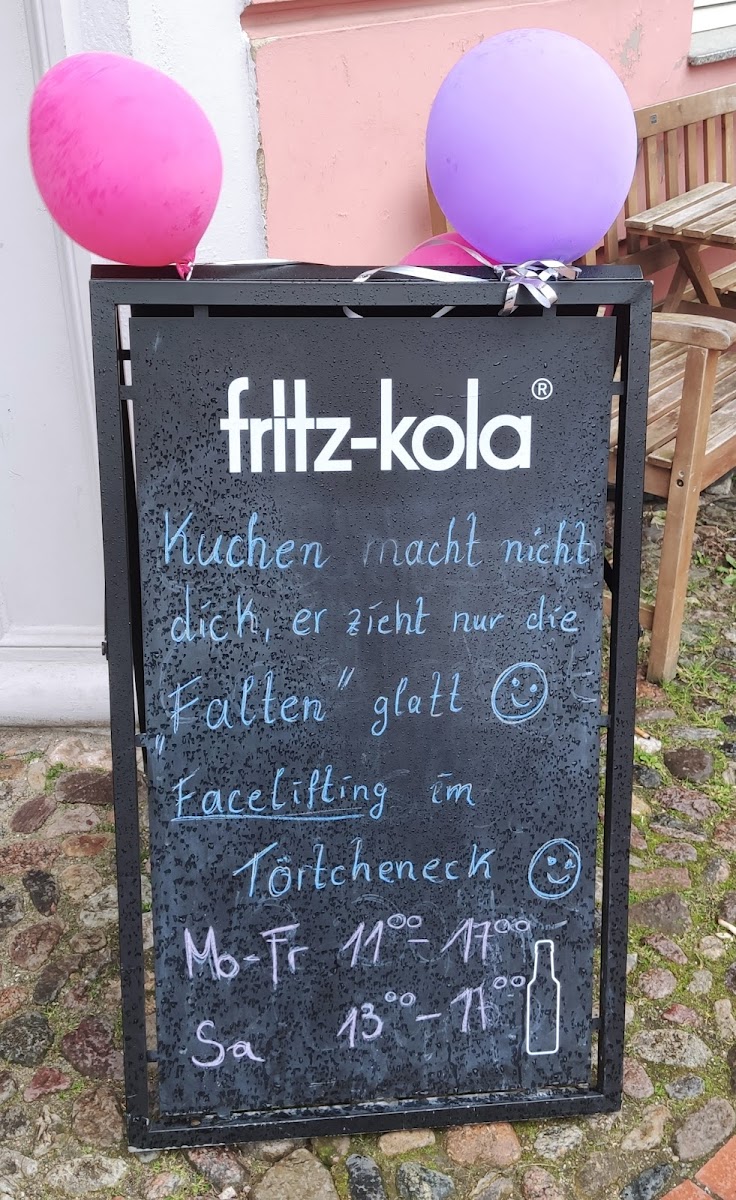 fritz-kola®
Kuchen macht nicht
dick, er zieht nur die
"Falten" glatt
Facelifting im
Törtcheneck
Mo-Fr 11⁰⁰-17⁰⁰
Sa 13⁰⁰-17⁰⁰